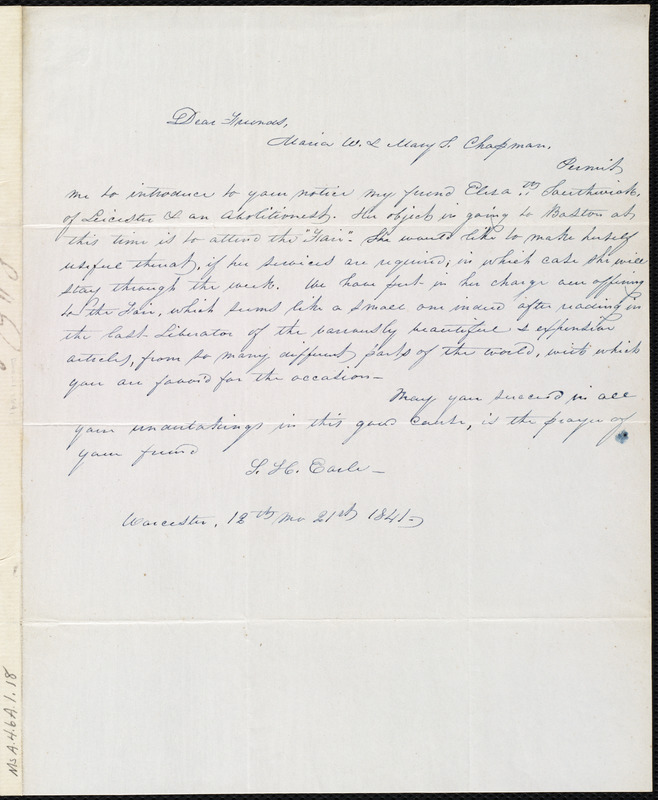 Dear Friends,
Maria W. & Mary G. Chapman.
Permit
me to introduce to your notice my friend Elisa.th Southwick,
of Leicester & an Abolitionist. Her object in going to Boston at
this time is to attend the "Fair". She would like to make herself
useful thereat, if her services are required; in which case she will
stay through the week. We have put in her charge our offering
to the Fair, which seems like a small one indeed after reading in
the last Liberator of the variously beautiful & expensive
articles, from so many different parts of the world, with which
you are favored for the occasion—
May you succeed in all
your undertakings in this good cause, is the prayer of
your friend
S. H. Earle—
Worcester, 12th mo 21st 1841—
Ms A.4.6A.1.18